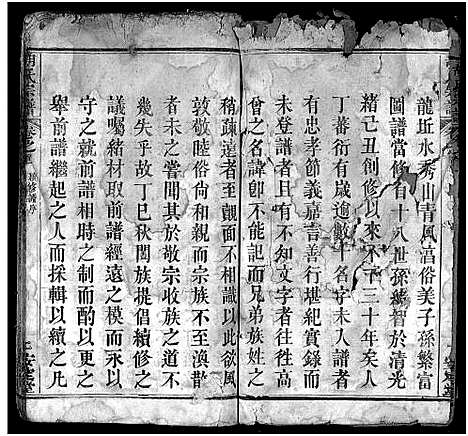 龍坵水秀山青風富俗美子孫繁富
圖譜當修有十八世孫 智於清光
緒己丑創修以來不下二十年矣人
丁蕃衍有歲逾數十名字未入譜者
有忠孝節義嘉言善行堪紀實錄而
未登譜者且有不知文字者往往高
曾之名諱卽不能記而兄弟族姓之
稍疎遠者至覿面不相識以此欲風
敦敬睦俗尚和親而宗族不至渙散
者未之嘗聞其於敬宗收族之道不
幾失乎故丁巳秋闔族提倡續修之
議囑緒材取前譜經遠之模而永以
守之就前譜相時之制而酌以更之
舉前譜繼起之人而採輯以續之凡
胡氏宗譜
卷之首
續修譜序
安定堂